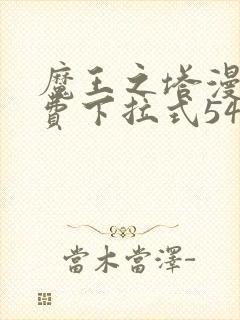 魔王之塔漫
費下拉式54
當木當澤-